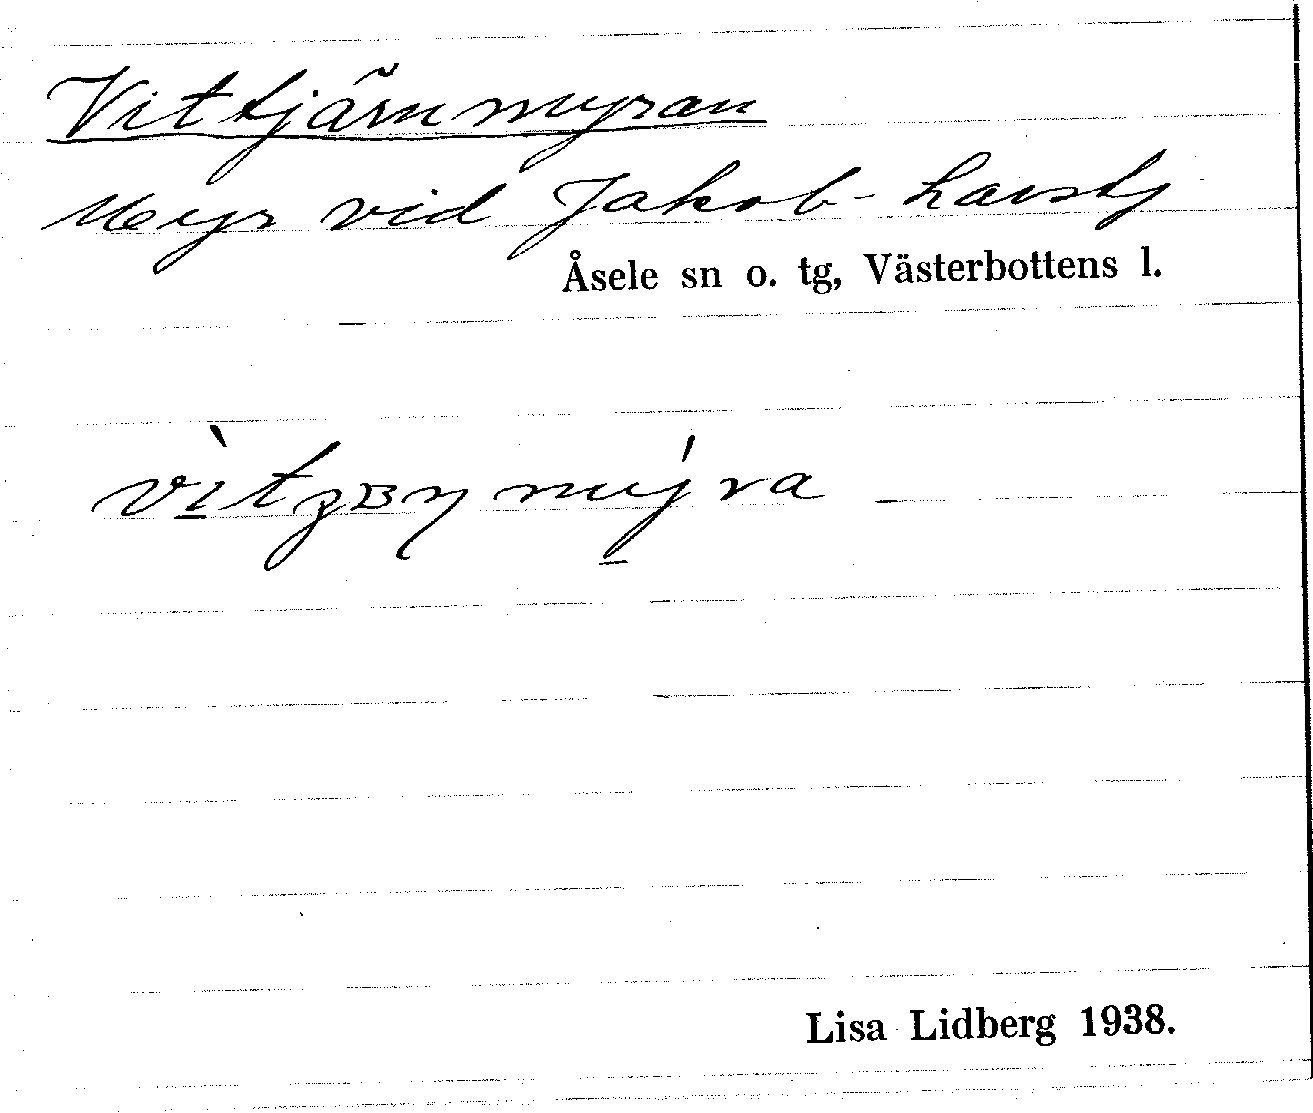 Vittjärnmyran
Myr vid Jakob-Larstj
Åsele sn o. tg, Västerbottens l.
Lisa Lidberg 1938.